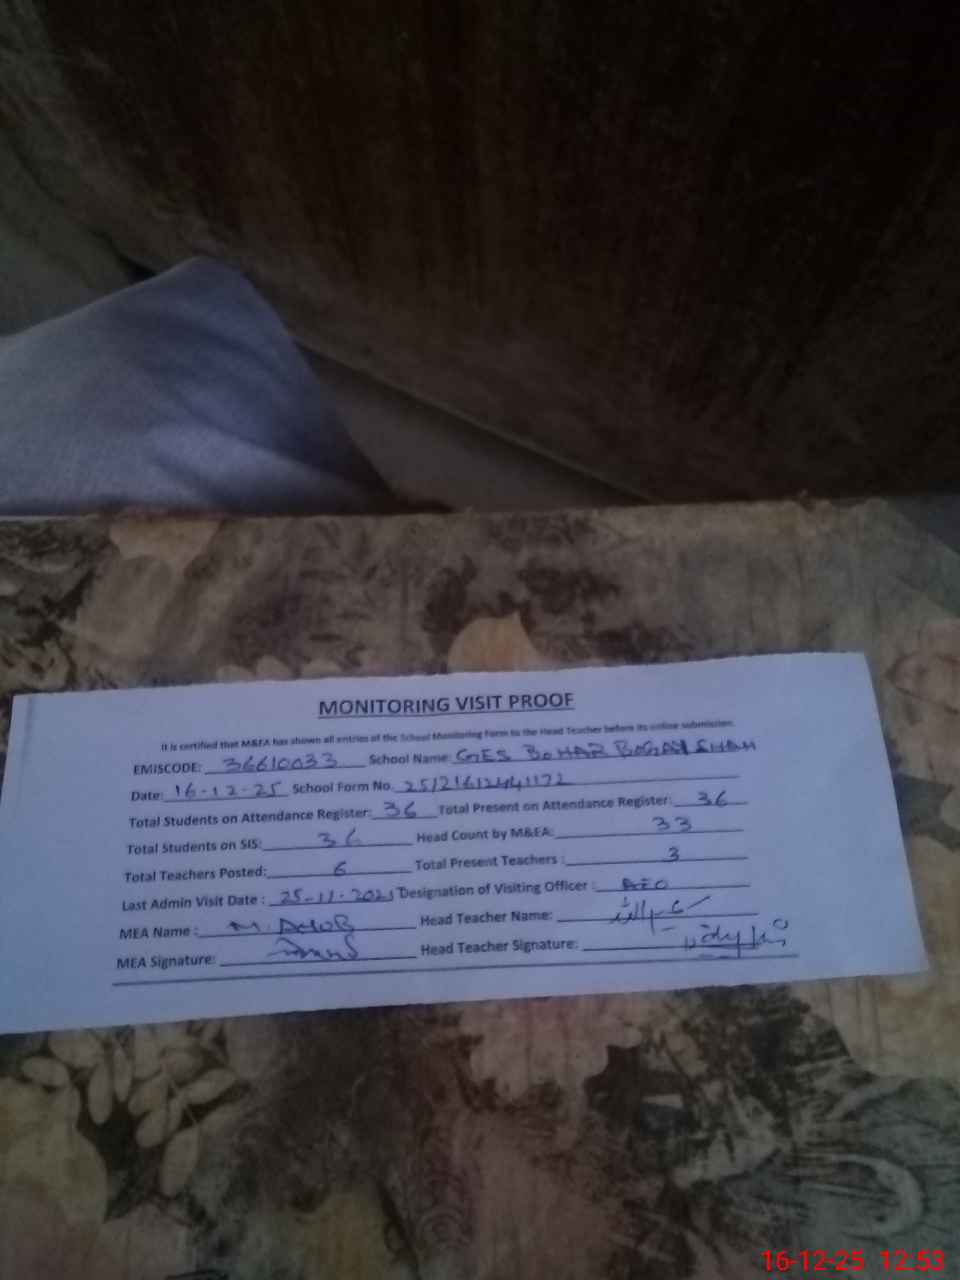 MONITORING VISIT PROOF
It is certified that M&EA has shown all entries of the School Monitoring Form to the Head Teacher before its online submission.
EMISCODE: 36610033 School Name: GES BOHAR SHAH
Date: 16-12-25 School Form No.
Total Students on Attendance Register: 36 Total Present on Attendance Register: 36
Total Students on SIS: 36 Head Count by M&EA: 33
Total Teachers Posted: 6 Total Present Teachers : 3
Last Admin Visit Date : 25-11-2025 Designation of Visiting Officer : AEO
MEA Name : M. Head Teacher Name:
MEA Signature: Head Teacher Signature:
16-12-25 12:53